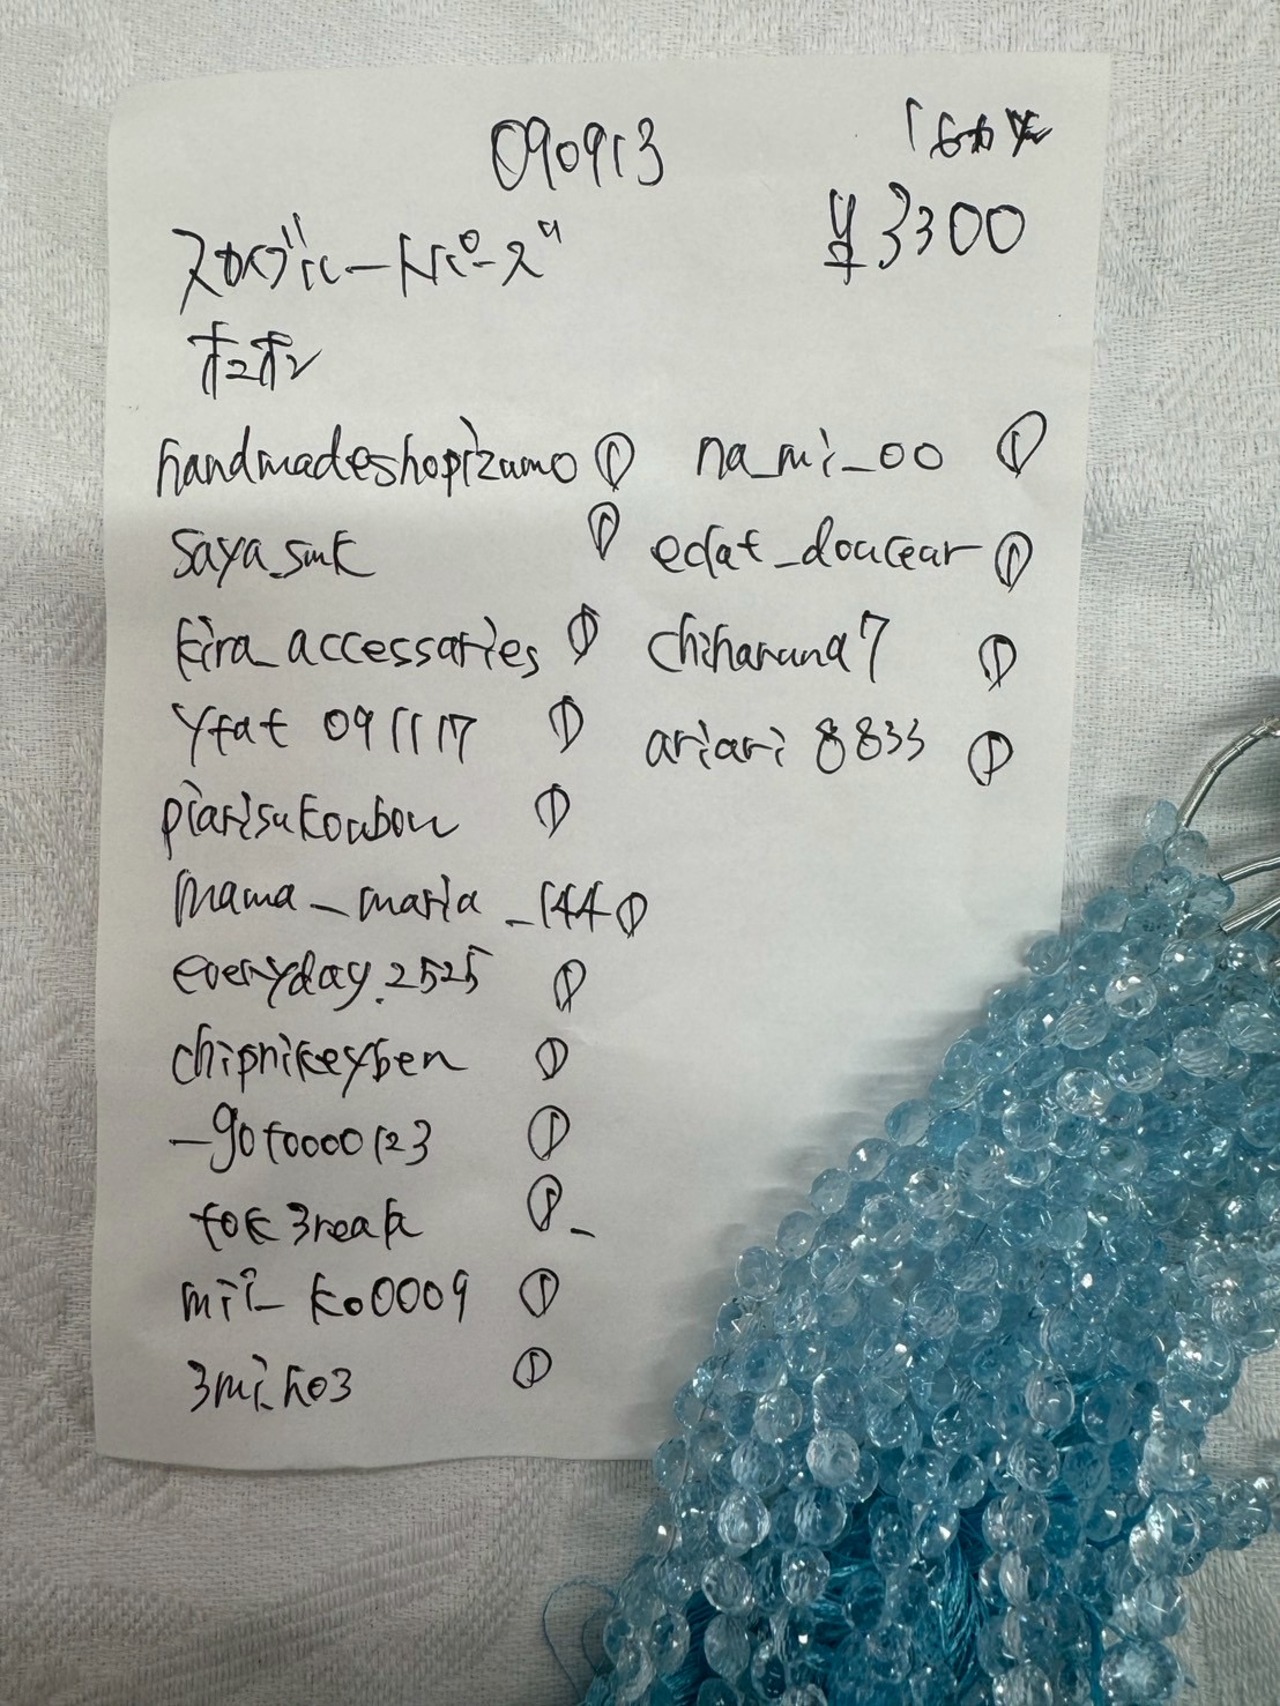 090913
¥3300
スカイブルートパーズ
handmadeshopizumo ①
saya_smk ①
kira_accessaries ①
yfat 091117 ①
piarisukoubou ①
mama_maria_144 ①
everyday.2525 ①
chipnikeyben ①
_goto000123 ①
tok3reak ①
mii_ko0009 ①
3mi.ho3 ①
na_mi_oo ①
eclat_doucear ①
chiharuna7 ①
ariari8833 ①